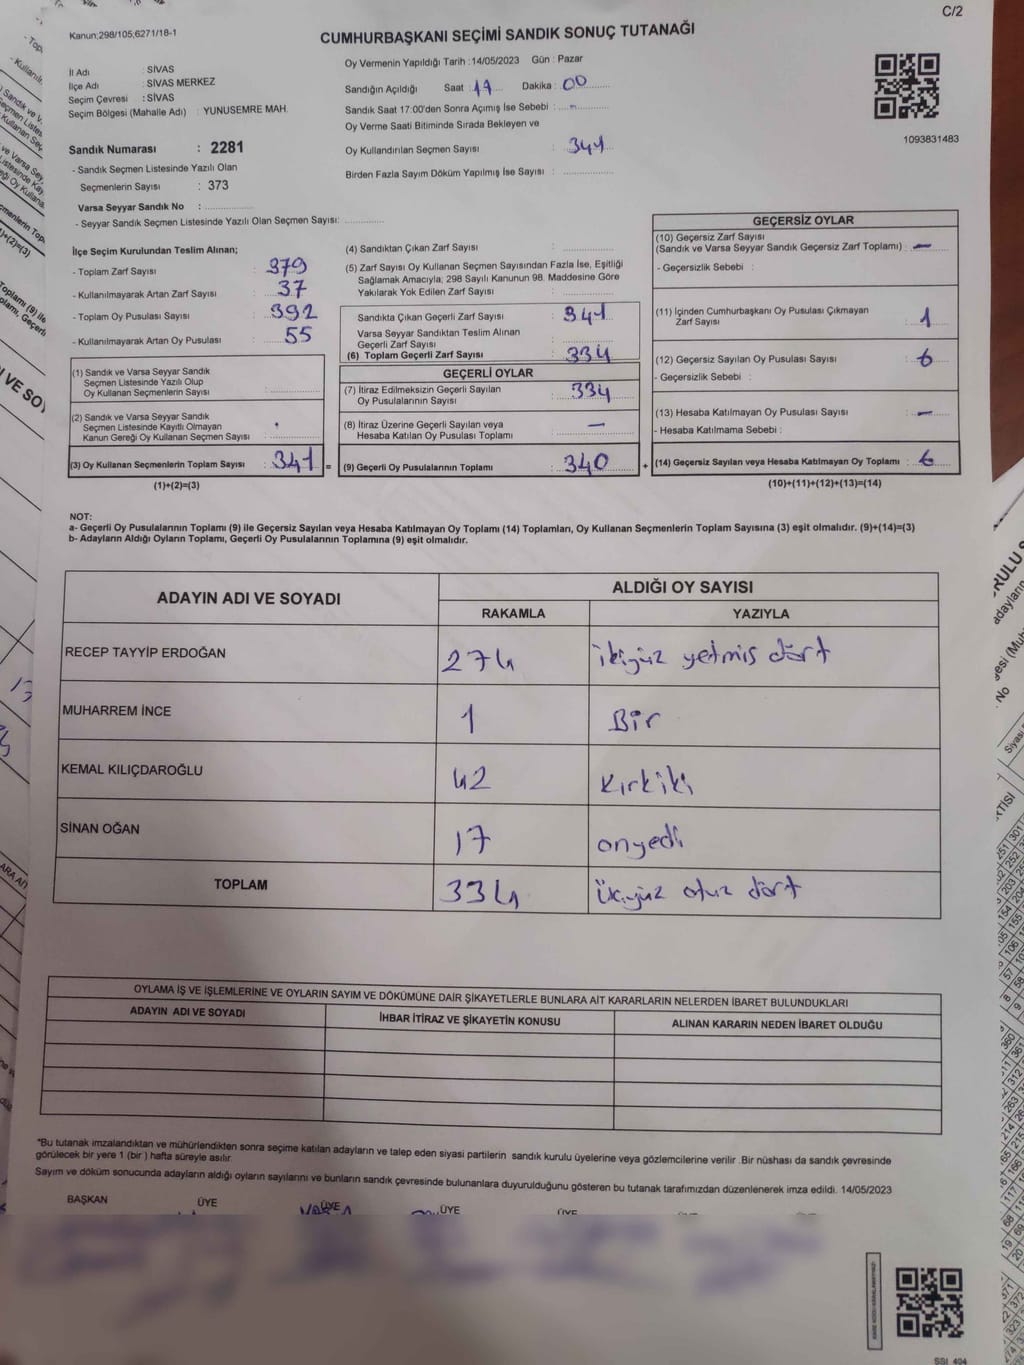 C/2
Kanun;298/105;6271/18-1
CUMHURBAŞKANI SEÇİMİ SANDIK SONUÇ TUTANAĞI
İl Adı : SİVAS
İlçe Adı : SİVAS MERKEZ
Seçim Çevresi : SİVAS
Seçim Bölgesi (Mahalle Adı) : YUNUSEMRE MAH.
Sandık Numarası : 2281
- Sandık Seçmen Listesinde Yazılı Olan
Seçmenlerin Sayısı : 373
Varsa Seyyar Sandık No :
- Seyyar Sandık Seçmen Listesinde Yazılı Olan Seçmen Sayısı:
Oy Vermenin Yapıldığı Tarih :14/05/2023 Gün : Pazar
Sandığın Açıldığı Saat : 17 Dakika : 00
Sandık Saat 17:00'den Sonra Açımış İse Sebebi : -
Oy Verme Saati Bitiminde Sırada Bekleyen ve
Oy Kullandırılan Seçmen Sayısı : 341
Birden Fazla Sayım Döküm Yapılmış İse Sayısı :
1093831483
İlçe Seçim Kurulundan Teslim Alınan;
- Toplam Zarf Sayısı : 379
- Kullanılmayarak Artan Zarf Sayısı : 37
- Toplam Oy Pusulası Sayısı : 392
- Kullanılmayarak Artan Oy Pusulası : 55
(1) Sandık ve Varsa Seyyar Sandık
Seçmen Listesinde Yazılı Olup
Oy Kullanan Seçmenlerin Sayısı :
(2) Sandık ve Varsa Seyyar Sandık
Seçmen Listesinde Kayıtlı Olmayan
Kanun Gereği Oy Kullanan Seçmen Sayısı :
(3) Oy Kullanan Seçmenlerin Toplam Sayısı : 341 =
(1)+(2)=(3)
(4) Sandıktan Çıkan Zarf Sayısı :
(5) Zarf Sayısı Oy Kullanan Seçmen Sayısından Fazla İse, Eşitliği
Sağlamak Amacıyla; 298 Sayılı Kanunun 98. Maddesine Göre
Yakılarak Yok Edilen Zarf Sayısı :
Sandıkta Çıkan Geçerli Zarf Sayısı : 341
Varsa Seyyar Sandıktan Teslim Alınan
Geçerli Zarf Sayısı :
(6) Toplam Geçerli Zarf Sayısı : 334
GEÇERLİ OYLAR
(7) İtiraz Edilmeksizin Geçerli Sayılan
Oy Pusulalarının Sayısı : 334
(8) İtiraz Üzerine Geçerli Sayılan veya
Hesaba Katılan Oy Pusulası Toplamı : —
(9) Geçerli Oy Pusulalarının Toplamı : 340 +
GEÇERSİZ OYLAR
(10) Geçersiz Zarf Sayısı
(Sandık ve Varsa Seyyar Sandık Geçersiz Zarf Toplamı) : —
- Geçersizlik Sebebi :
(11) İçinden Cumhurbaşkanı Oy Pusulası Çıkmayan
Zarf Sayısı : 1
(12) Geçersiz Sayılan Oy Pusulası Sayısı : 6
- Geçersizlik Sebebi :
(13) Hesaba Katılmayan Oy Pusulası Sayısı : —
- Hesaba Katılmama Sebebi :
(14) Geçersiz Sayılan veya Hesaba Katılmayan Oy Toplamı : 6
(10)+(11)+(12)+(13)=(14)
NOT:
a- Geçerli Oy Pusulalarının Toplamı (9) ile Geçersiz Sayılan veya Hesaba Katılmayan Oy Toplamı (14) Toplamları, Oy Kullanan Seçmenlerin Toplam Sayısına (3) eşit olmalıdır. (9)+(14)=(3)
b- Adayların Aldığı Oyların Toplamı, Geçerli Oy Pusulalarının Toplamına (9) eşit olmalıdır.
ADAYIN ADI VE SOYADI
ALDIĞI OY SAYISI
RAKAMLA YAZIYLA
RECEP TAYYİP ERDOĞAN 274 ikiyüz yetmiş dört
MUHARREM İNCE 1 Bir
KEMAL KILIÇDAROĞLU 42 Kırkiki
SİNAN OĞAN 17 onyedi
TOPLAM 334 üçyüz otuz dört
OYLAMA İŞ VE İŞLEMLERİNE VE OYLARIN SAYIM VE DÖKÜMÜNE DAİR ŞİKAYETLERLE BUNLARA AİT KARARLARIN NELERDEN İBARET BULUNDUKLARI
ADAYIN ADI VE SOYADI İHBAR İTİRAZ VE ŞİKAYETİN KONUSU ALINAN KARARIN NEDEN İBARET OLDUĞU
*Bu tutanak imzalandıktan ve mühürlendikten sonra seçime katılan adayların ve talep eden siyasi partilerin sandık kurulu üyelerine veya gözlemcilerine verilir .Bir nüshası da sandık çevresinde
görülecek bir yere 1 (bir ) hafta süreyle asılır.
Sayım ve döküm sonucunda adayların aldığı oyların sayılarını ve bunların sandık çevresinde bulunanlara duyurulduğunu gösteren bu tutanak tarafımızdan düzenlenerek imza edildi. 14/05/2023
BAŞKAN ÜYE ÜYE ÜYE ÜYE